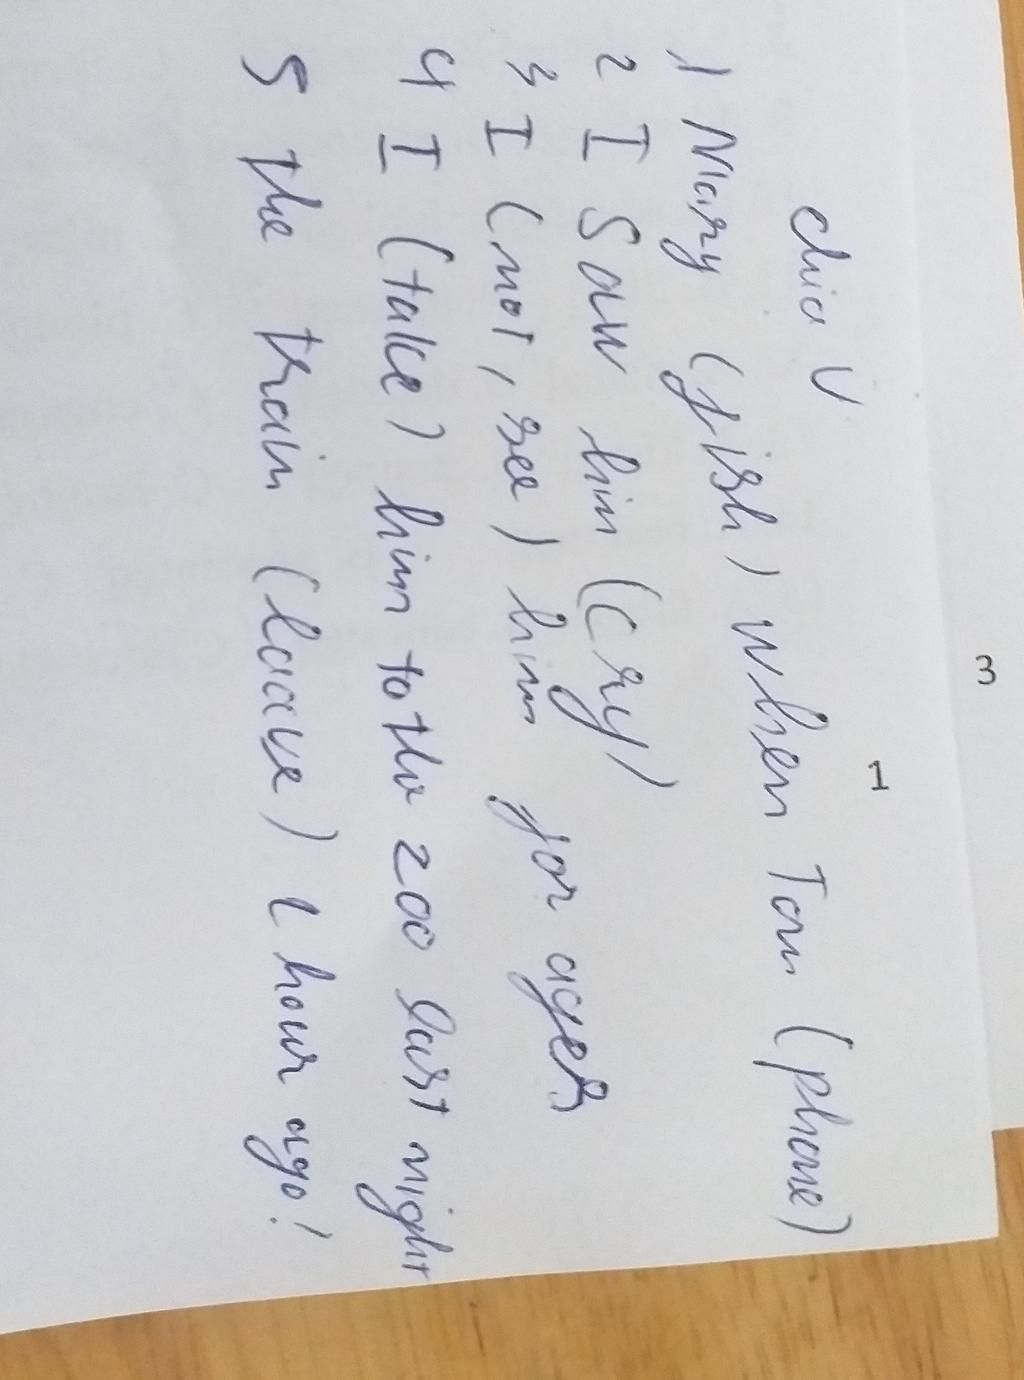 chia V
1 Mary (fish) when Tom (phone)
2 I saw him (cry)
3 I (not, see) him for ages
4 I (take) him to the zoo last night
5 the train (leave) 1 hour ago!
3
1